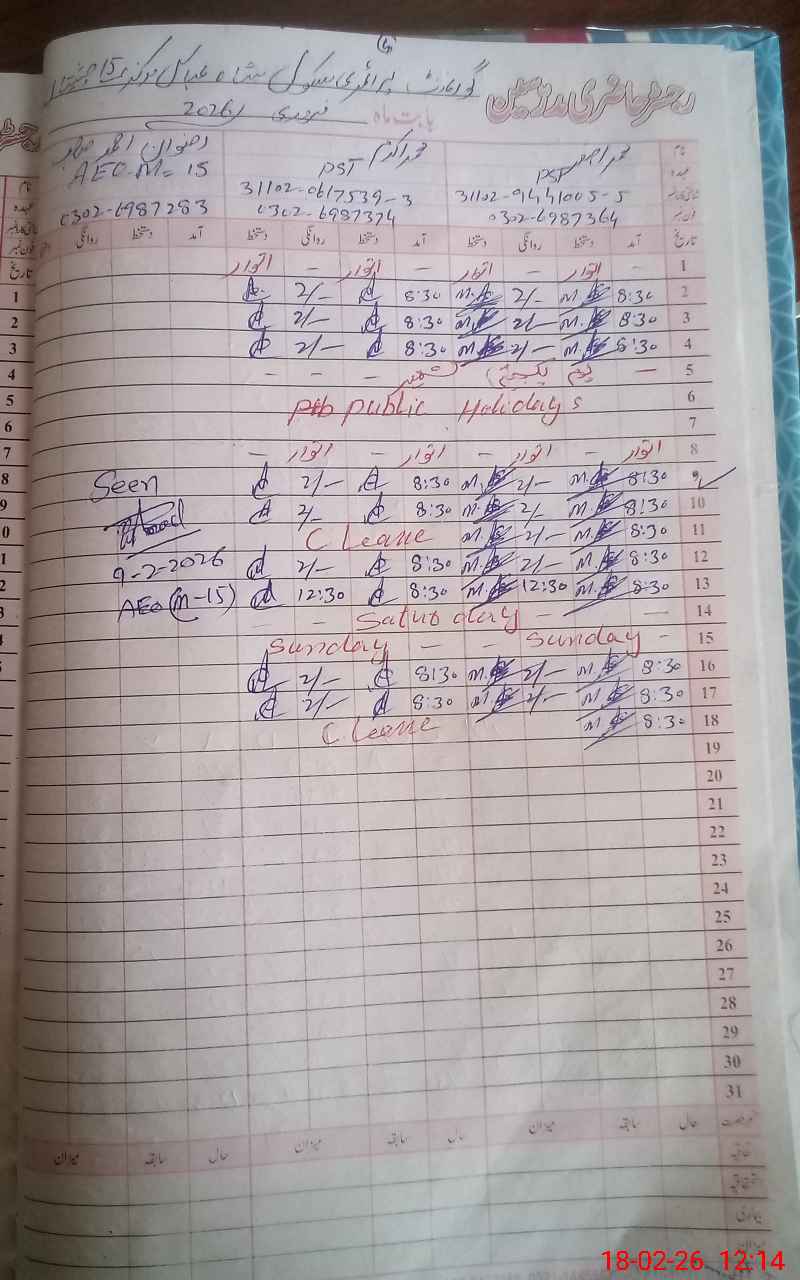 گورنمنٹ پرائمری سکول شاہ عباس مرکز 15
رجسٹر حاضری ملازمین
بابت ماہ فروری 2026
نام محمد اصغر محمد اکرم رضوان احمد
عہدہ PST PST AEO-M= 15
31102-9441005-5 31102-0617539-3
فون نمبر 0302-6987364 0302-6987374 0302-6987283
تاریخ آمد دستخط روانگی دستخط آمد دستخط روانگی دستخط آمد دستخط روانگی
1 اتوار - اتوار - اتوار - اتوار
2 8:30 M.A 2/- M.A 8:30 2/-
3 8:30 M. 2/- M. 8:30 2/-
4 8:30 M. 2/- M. 8:30 2/-
5 — یوم یکجہتی کشمیر - - - -
6 Pub public Holidays
7
8 اتوار - اتوار - اتوار - اتوار -
9 8:30 M. 2/- M. 8:30 2/- Seen
10 8:30 M. 2/- M. 8:30 2/-
11 8:30 M. 2/- M. C Leave
12 8:30 M. 2/- M. 8:30 2/- 9-2-2026
13 8:30 M. 12:30 M. 8:30 12:30 AEO (M-15)
14 — - Saturday - -
15 - Sunday - - Sunday
16 8:30 M. 2/- M. 8:30 2/-
17 8:30 M. 2/- M. 8:30 2/-
18 8:30 M. C Leave
19
20
21
22
23
24
25
26
27
28
29
30
31
حال سابقہ میزان حال سابقہ میزان حال سابقہ میزان
اتفاقیہ
بیماری
میزان
18-02-26 12:14